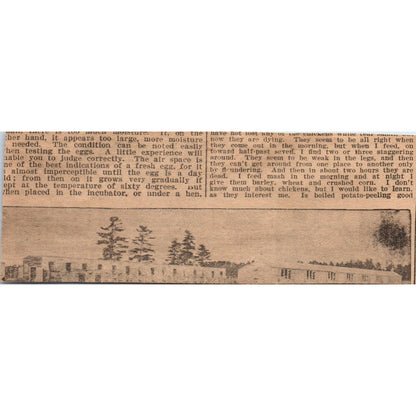 too much moisture. If, on the
her hand, it appears too large, more moisture
needed. The condition can be noted easily
hen testing the eggs. A little experience will
nable you to judge correctly. The air space is
ne of the best indications of a fresh egg, for it
almost imperceptible until the egg is a day
ld; from then on it grows very gradually if
ept at the temperature of sixty degrees. But
hen placed in the incubator, or under a hen,
have not lost any of the chickens
now they are dying. They seem to be all right when
they come out in the morning, but when I feed, on
toward half-past seven, I find two or three staggering
around. They seem to be weak in the legs, and then
they can't get around from one place to another only
by floundering. And then in about two hours they are
dead. I feed mash in the morning and at night I
give them barley, wheat and crushed corn. I don't
know much about chickens, but I would like to learn,
as they interest me. Is boiled potato-peeling good